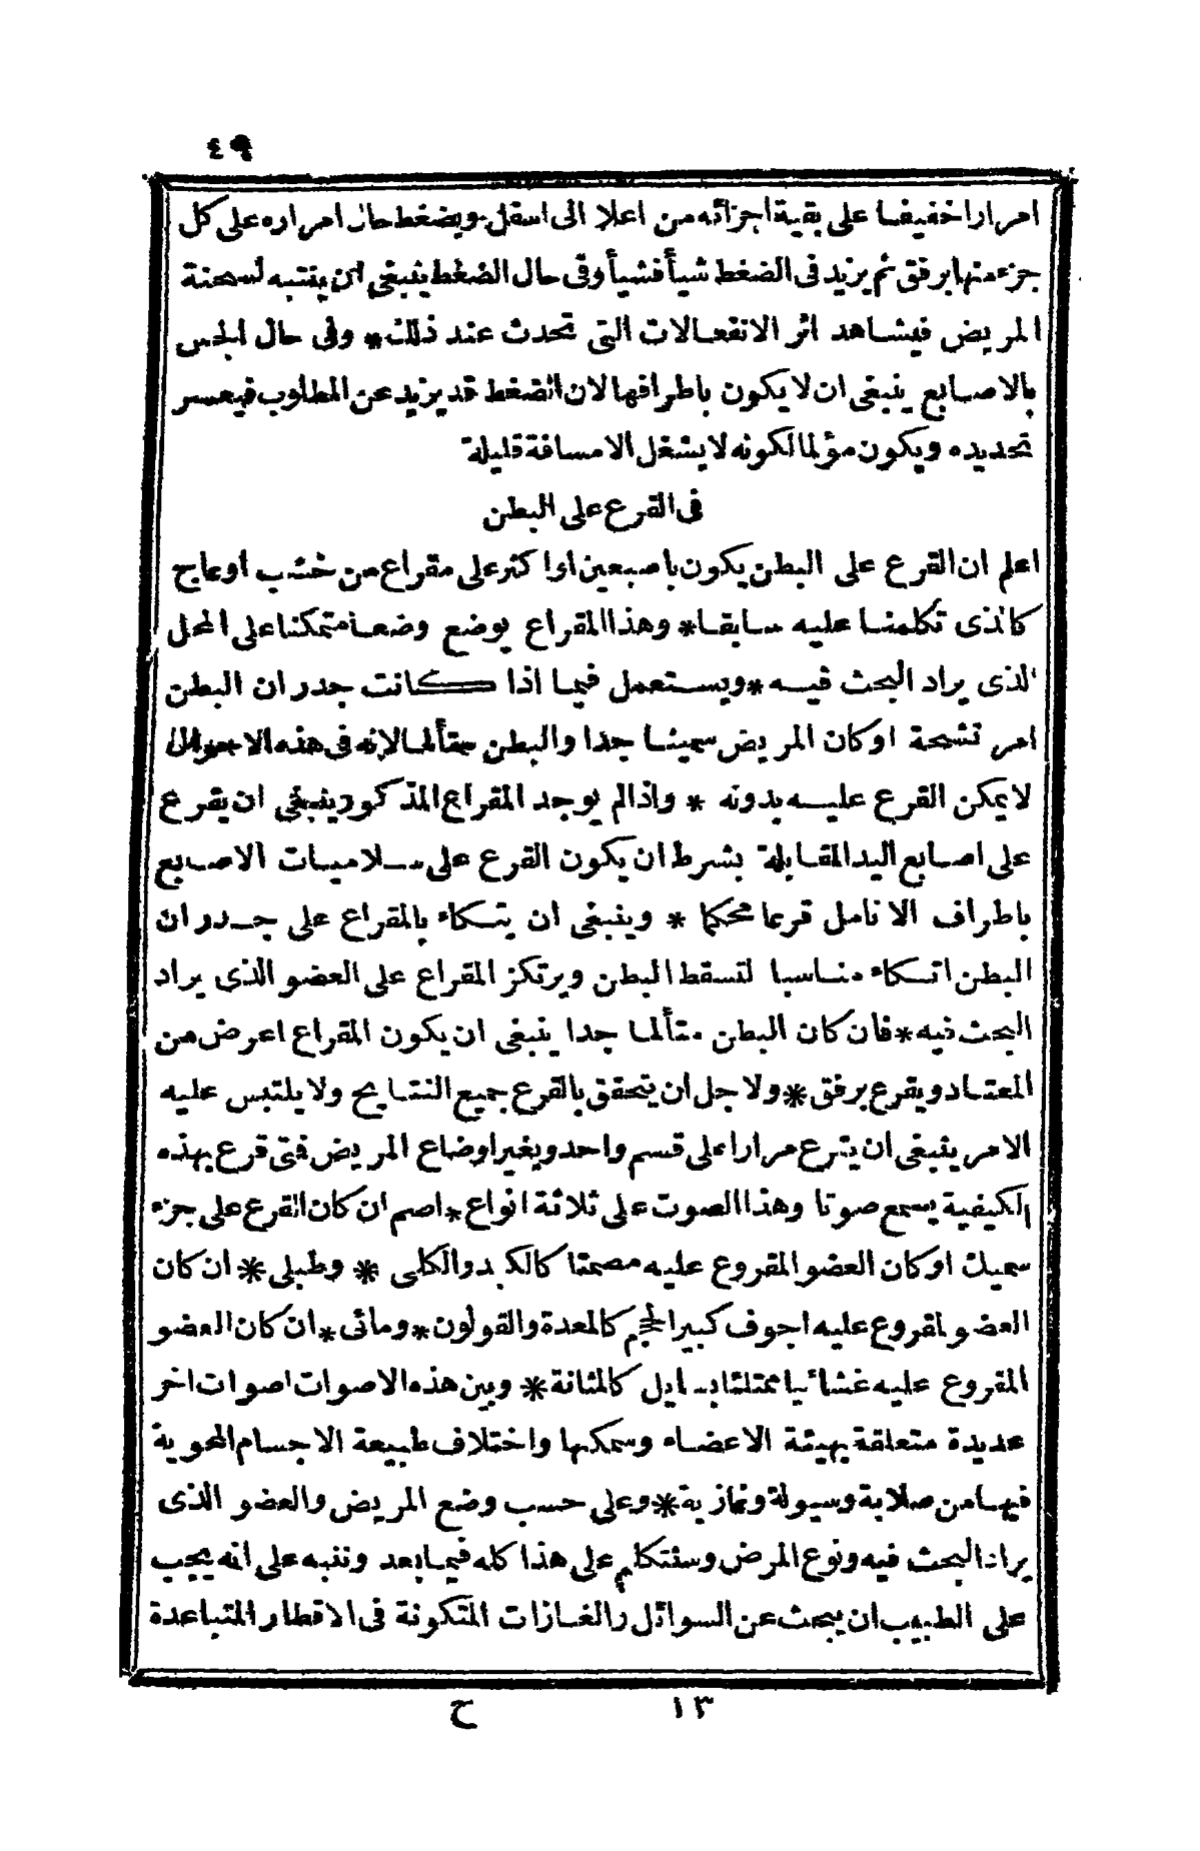 ٤٩
امرارا خفيفا على بقية اجزائه من اعلا الى اسفل ويضغط حال امراره على كل
جزء منها برفق ثم يزيد فى الضغط شيأ فشيأ وفى حال الضغط ينبغى ان ينتبه لسحنة
المريض فيشاهد اثر الانفعالات التى تحدث عند ذلك * وفى حال الجس
بالاصابع ينبغى ان لا يكون باطرافها لان الضغط قد يزيد عن المطلوب فيعسر
تحديده ويكون مؤلما لكونه لا يشغل الا مسافة قليلة
فى القرع على البطن
اعلم ان القرع على البطن يكون باصبعين او اكثر على مقراع من خشب او عاج
كالذى تكلمنا عليه سابقا * وهذا المقراع يوضع وضعا متمكنا على المحل
الذى يراد البحث فيه * ويستعمل فيما اذا كانت جدران البطن
مرتشحة او كان المريض سمينا جدا والبطن متألما لانه فى هذه الاحوال
لا يمكن القرع عليه بدونه * واذا لم يوجد المقراع المذكور ينبغى ان يقرع
على اصابع اليد المقابلة بشرط ان يكون القرع على سلاميات الاصابع
باطراف الانامل قرعا محكما * وينبغى ان يتكاء بالمقراع على جدران
البطن اتكاء مناسبا لتسقط البطن ويرتكز المقراع على العضو الذى يراد
البحث فيه * فان كان البطن متألما جدا ينبغى ان يكون المقراع اعرض من
المعتاد ويقرع برفق * ولاجل ان يتحقق بالقرع جميع النتايج ولا يلتبس عليه
الامر ينبغى ان يقرع مرارا على قسم واحد ويغير اوضاع المريض فتى قرع بهذه
الكيفية يسمع صوتا وهذا الصوت على ثلاثة انواع * اصم ان كان القرع على جزء
سميك او كان العضو المقروع عليه مصمتا كالكبد والكلى * وطبلى * ان كان
العضو المقروع عليه اجوف كبير الحجم كالمعدة والقولون * ومائى * ان كان العضو
المقروع عليه غشائيا ممتلئا بسايل كالمثانة * وبين هذه الاصوات اصوات اخر
عديدة متعلقة بهيئة الاعضاء وسمكها واختلاف طبيعة الاجسام المحوية
فيها من صلابة وسيولة وغازية * وعلى حسب وضع المريض والعضو الذى
يراد البحث فيه ونوع المرض وسنتكلم على هذا كله فيما بعد وننبه على انه يجب
على الطبيب ان يبحث عن السوائل والغازات المتكونة فى الاقطار المتباعدة
١٣ ح